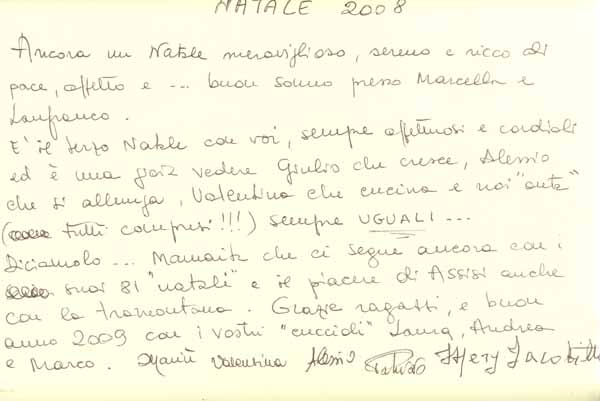 NATALE 2008
Ancora un Natale meraviglioso, sereno e ricco di
pace, affetto e ... buon sonno presso Marcella e
Lanfranco.
E' il terzo Natale con voi, sempre affettuosi e cordiali
ed è una gioia vedere Giulio che cresce, Alessio
che si allunga, Valentina che cucina e noi
( tutti compresi!!!) sempre UGUALI ...
Diciamolo ... Mamaita che ci segue ancora con i
suoi 81 "natali" e il piacere di Assisi anche
con la tramontana. Grazie ragazzi, e buon
anno 2009 con i vostri "cuccioli" Laura, Andrea
e Marco. Valentina Alessio